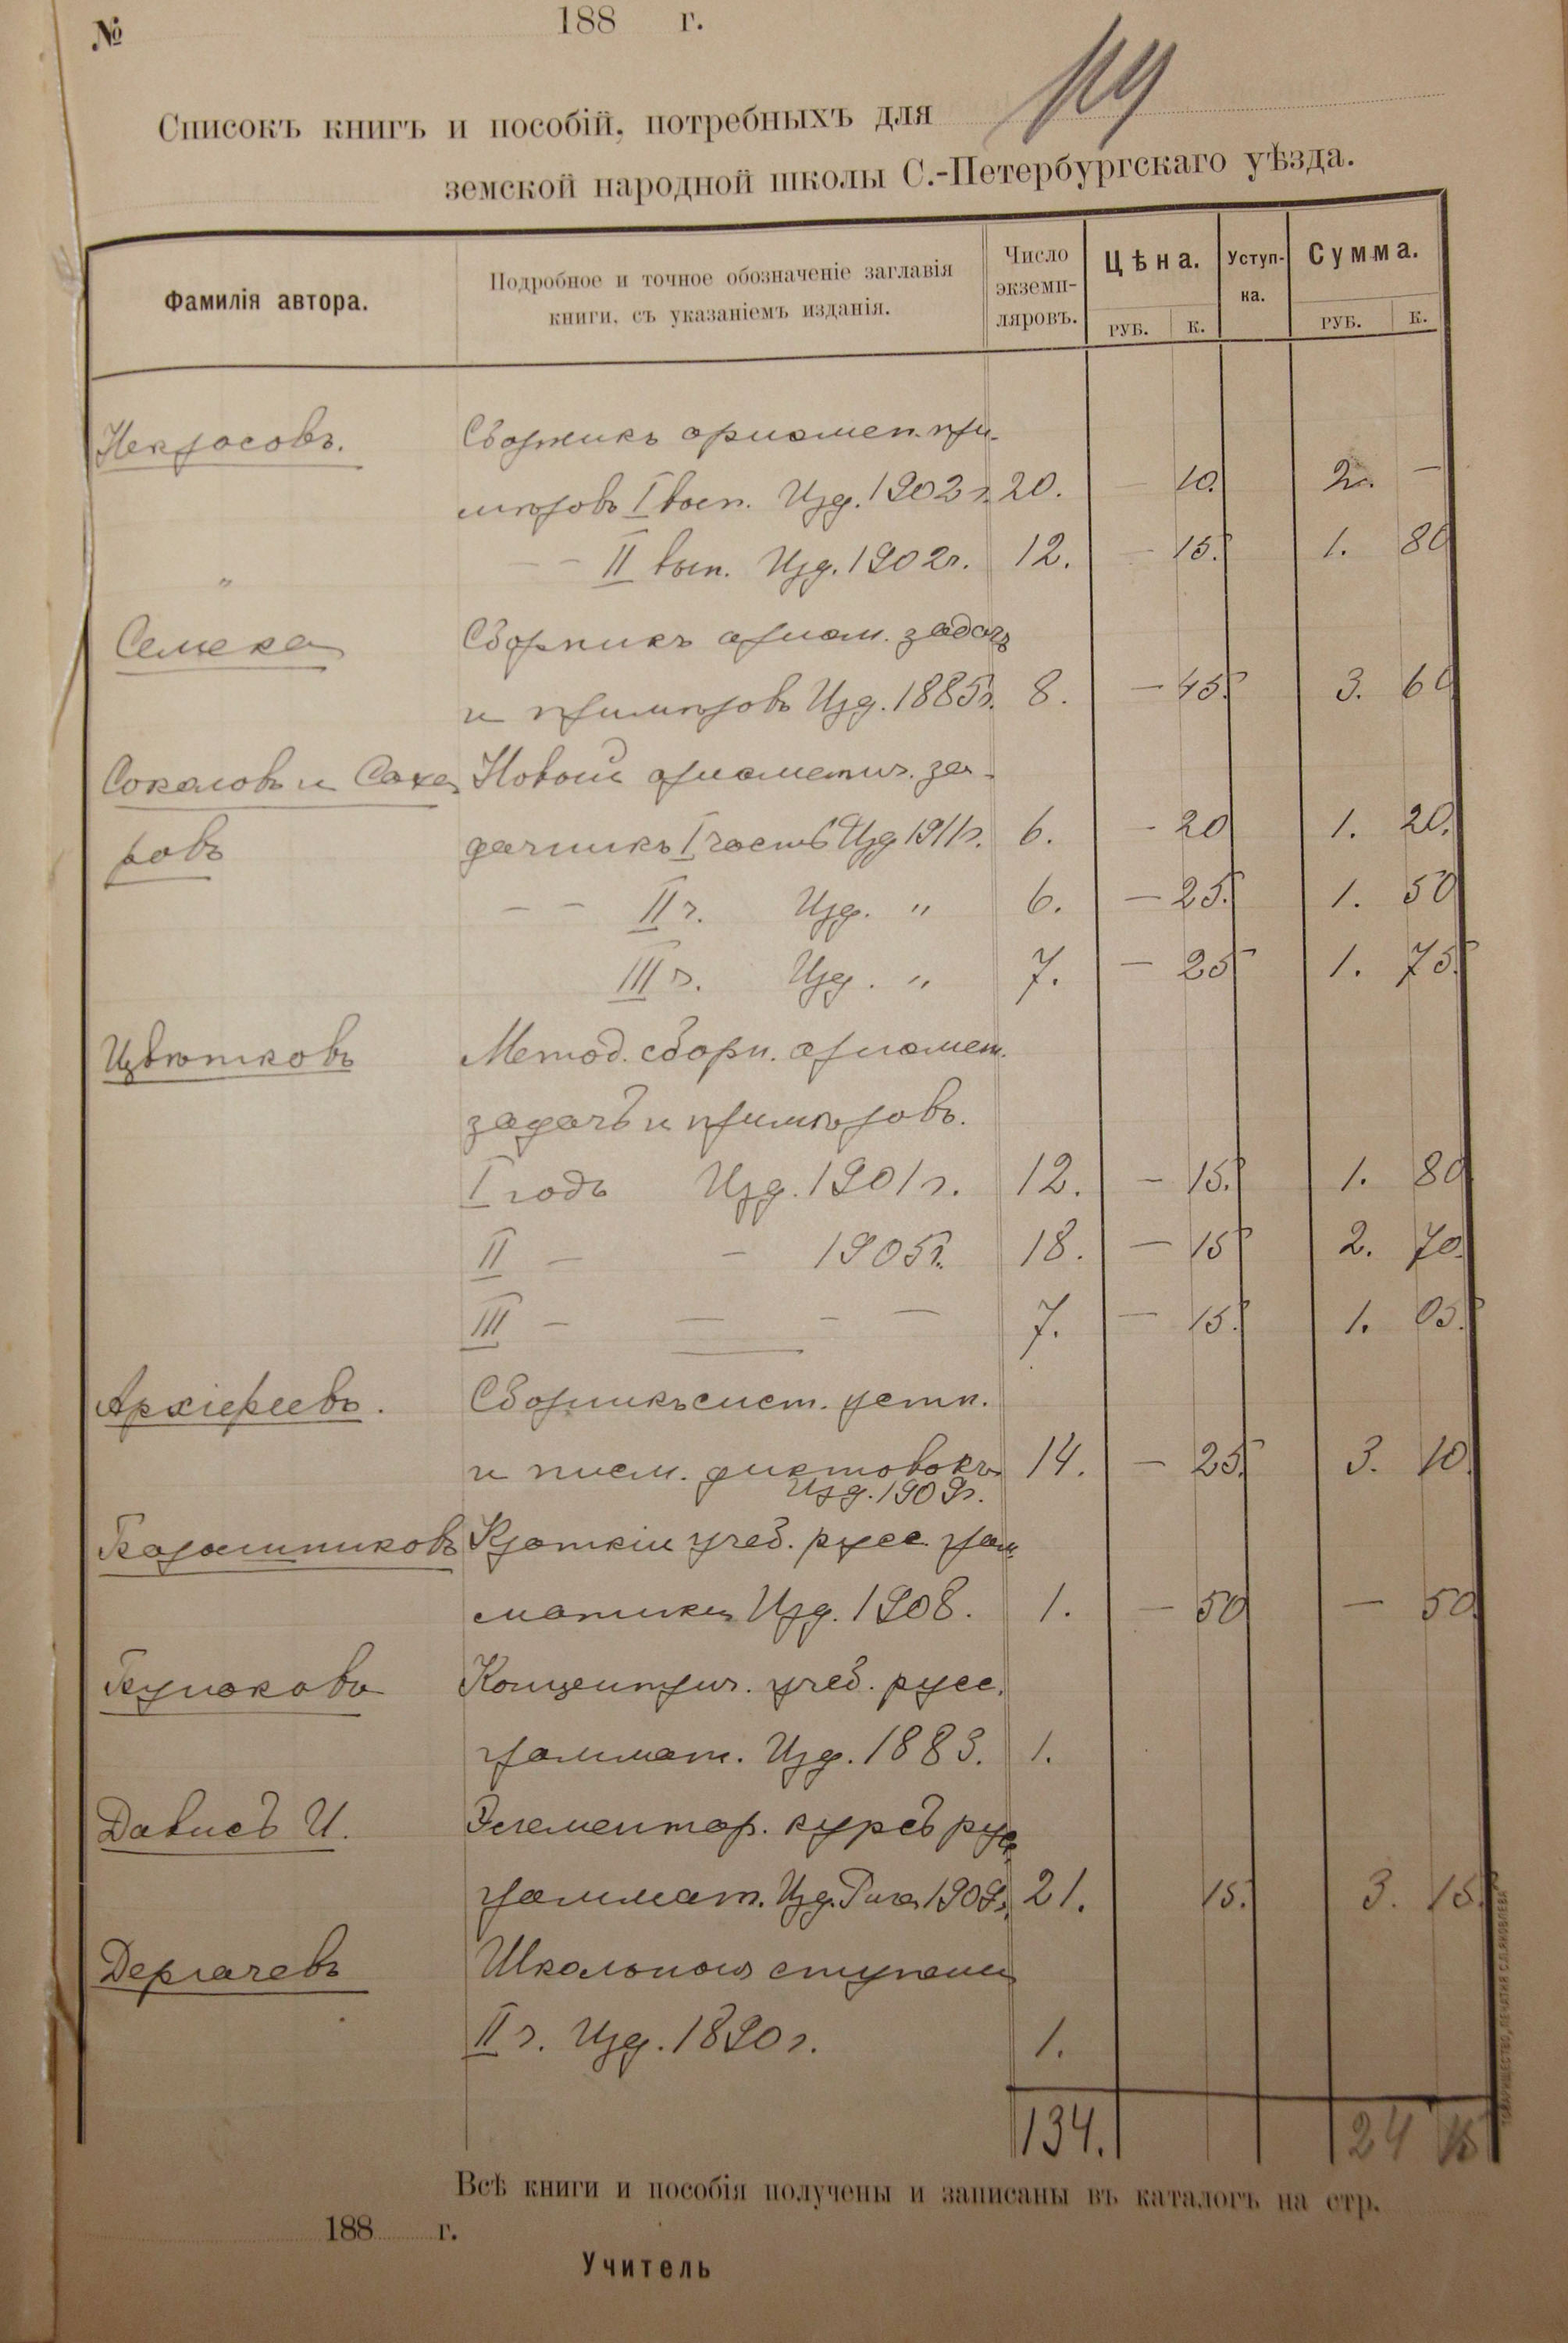 № 188 г.
119
Списокъ книгъ и пособій, потребныхъ для
земской народной школы С.-Петербургскаго уѣзда.
Фамилія автора. Подробное и точное обозначеніе заглавія книги, съ указаніемъ изданія. Число экземп-ляровъ. Цѣна. Уступ-ка. Сумма.
РУБ. К. РУБ. К.
Некрасовъ. Сборникъ ариѳмет. при-
мѣровъ I вып. Изд. 1902 г. 20. — 10. 2. —
" — — II вып. Изд. 1902 г. 12. — 15. 1. 80
Семека Сборникъ ариѳм. задачъ
и примѣровъ Изд. 1885 г. 8. — 45. 3. 60
Соколовъ и Саха Новый ариѳметич. за-
ровъ дачникъ I часть Изд 1911 г. 6. - 20 1. 20.
— — II ч. Изд. " 6. — 25. 1. 50
III ч. Изд. " 7. — 25 1. 75.
Цвѣтковъ Метод. сборн. ариѳмет.
задачъ и примѣровъ.
I годъ Изд. 1901 г. 12. — 15. 1. 80
II — — 1905 г. 18. — 15 2. 70.
III — — - — 7. — 15. 1. 05.
Архіереевъ. Сборникъ сист. устн.
и писм. диктовокъ 14. — 25. 3. 10.
Изд. 1909 г.
Барашниковъ Краткій учеб. русс. грам
матики Изд. 1908. 1. — 50 — 50.
Бунаковъ Концентрич. учеб. русс.
граммат. Изд. 1883. 1.
Дависъ И. Элементар. курсъ рус.
граммат. Изд. Рига 1909 г. 21. 15. 3. 15.
Дергачевъ Школьныя ступени
II ч. Изд. 1890 г. 1.
134. 24 15
Всѣ книги и пособія получены и записаны въ каталогъ на стр.
188 г.
Учитель
ТОВАРИЩЕСТВО „ПЕЧАТНЯ С.П.ЯКОВЛЕВА"